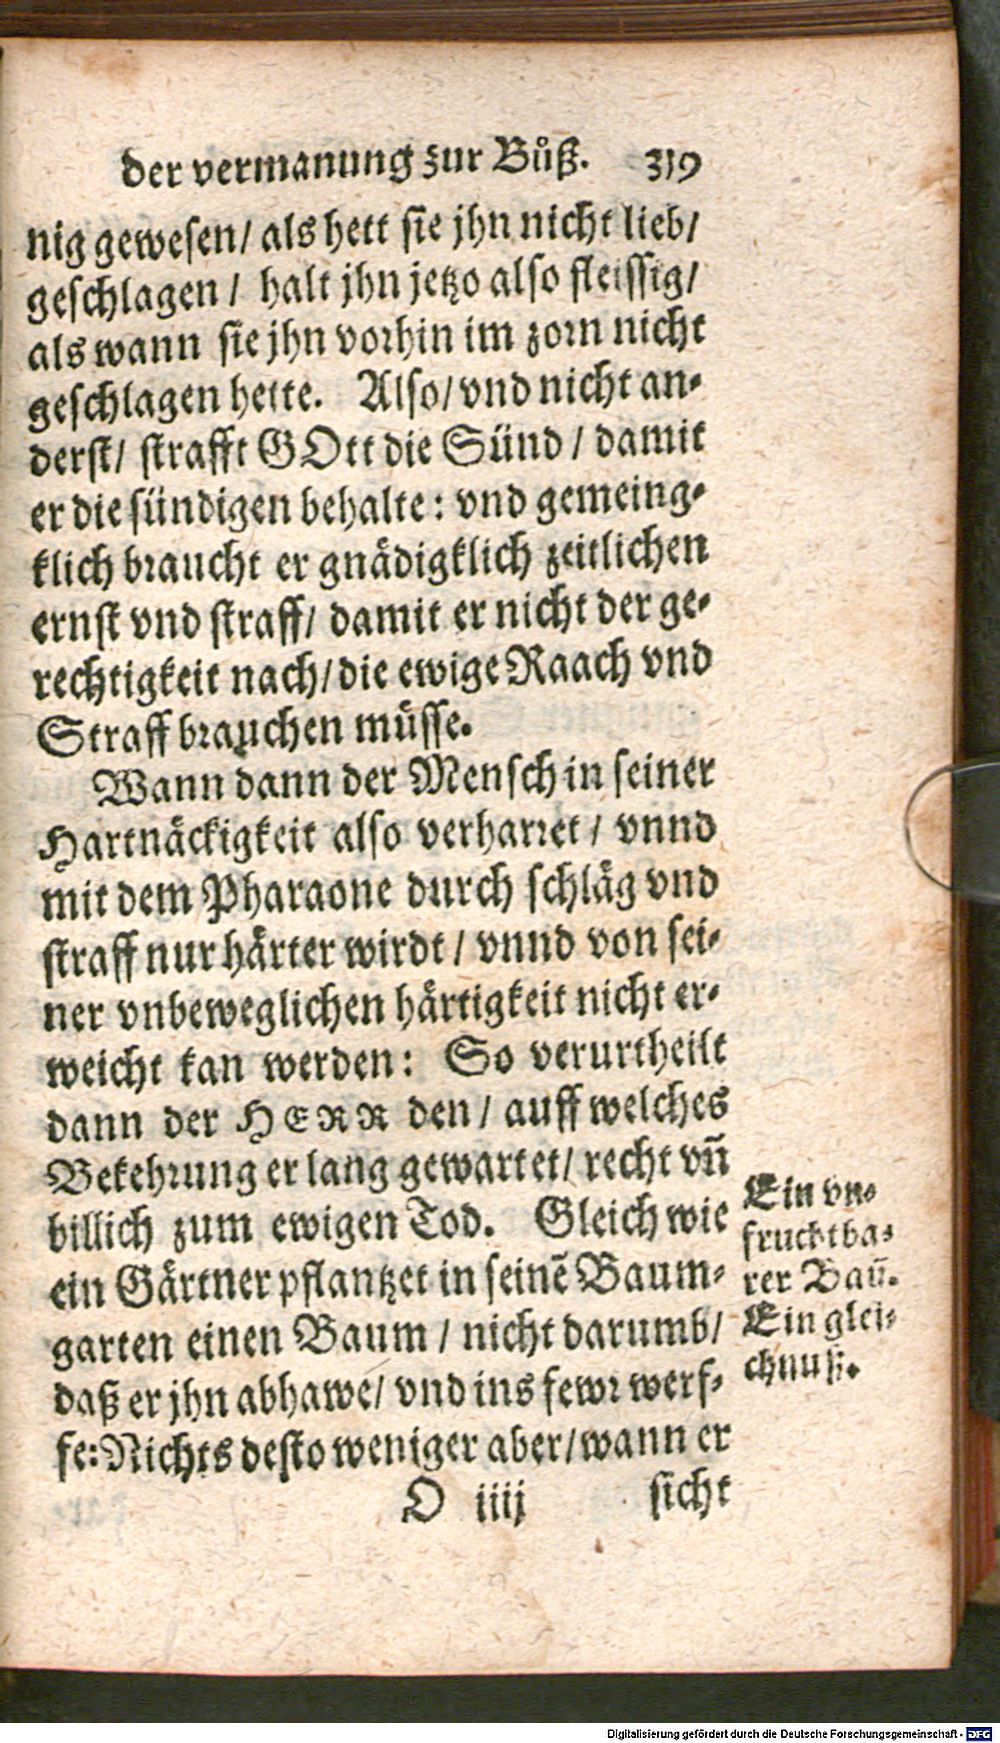 der vermanung zur Bůß. 319
nig gewesen/ als hett sie jhn nicht lieb/
geschlagen/ halt jhn jetzo also fleissig/
als wann sie jhn vorhin im zorn nicht
geschlagen hette. Also/ vnd nicht an-
derst/ strafft GOtt die Sünd/ damit
er die sündigen behalte: vnd gemeing-
klich braucht er gnädigklich zeitlichen
ernst vnd straff/ damit er nicht der ge-
rechtigkeit nach/ die ewige Raach vnd
Straff brauchen müsse.
Wann dann der Mensch in seiner
Hartnäckigkeit also verharret/ vnnd
mit dem Pharaone durch schläg vnd
straff nur härter wirdt/ vnnd von sei-
ner vnbeweglichen härtigkeit nicht er-
weicht kan werden: So verurtheilt
dann der HERR den/ auff welches
Bekehrung er lang gewartet/ recht vñ
billich zum ewigen Tod. Gleich wie
ein Gärtner pflantzet in seinẽ Baum-
garten einen Baum/ nicht darumb/
daß er jhn abhawe/ vnd ins fewr werf-
fe: Nichts desto weniger aber/ wann er
O iiij sicht
Ein vn-
fruchtba-
rer Baũ.
Ein glei-
chnuß.
Digitalisierung gefördert durch die Deutsche Forschungsgemeinschaft - DFG